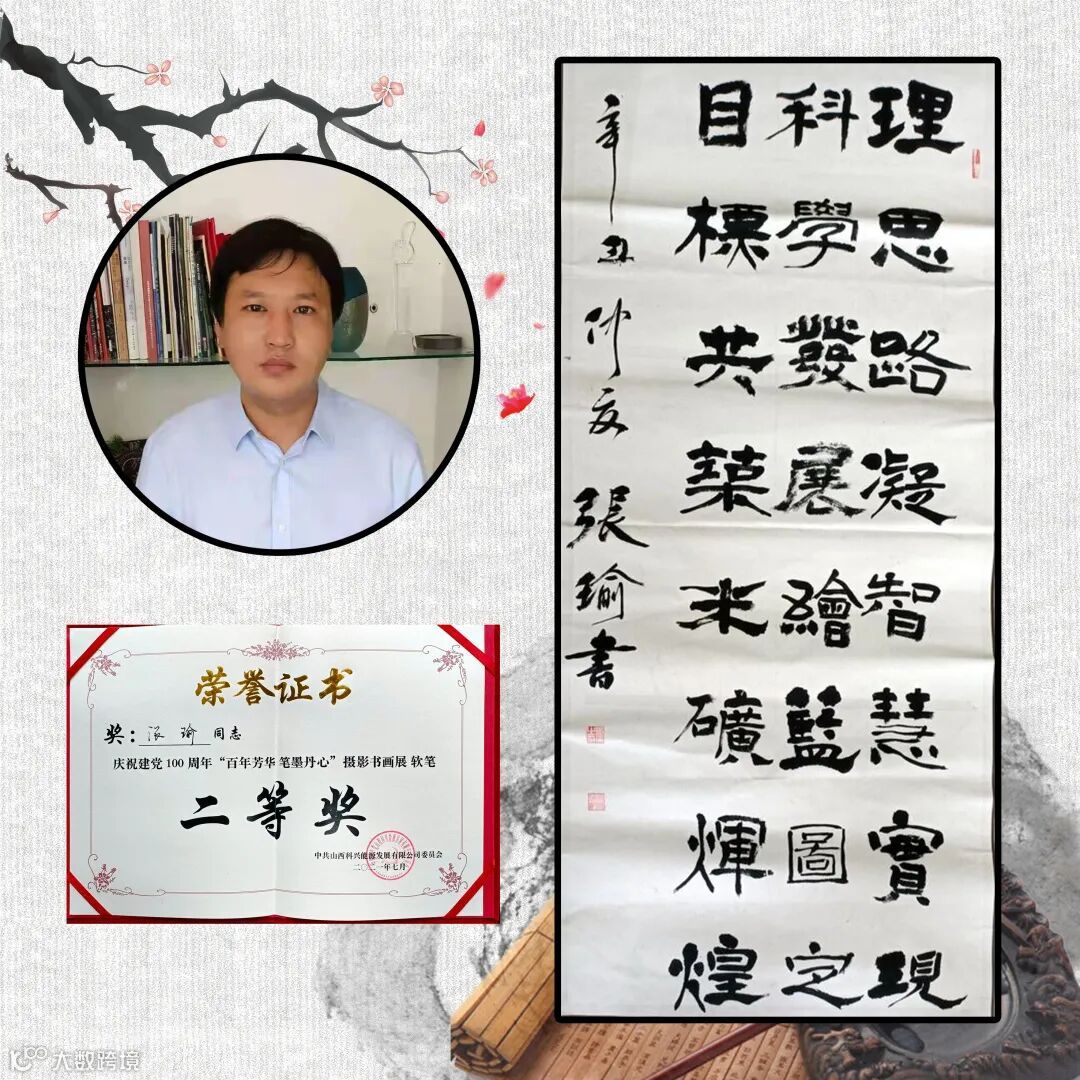 理思路凝智慧實現
科學發展繪藍圖定
目標共築米礦輝煌
辛丑仲夏 張瑜書
荣誉证书
奖：张瑜 同志
庆祝建党 100 周年“百年芳华 笔墨丹心”摄影书画展 软笔
二等奖
中共山西科兴能源发展有限公司委员会
二〇二一年七月
大数跨境